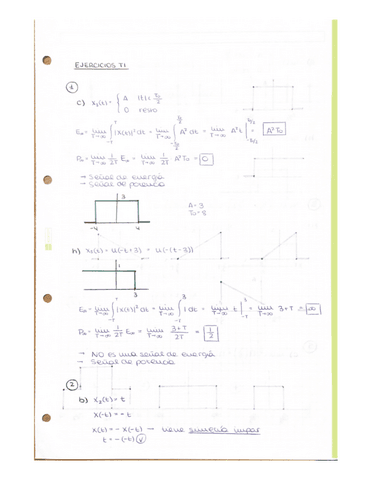 EJERCICIOS T1
1
c) x₁(t) = { A |t| < T₀/2
0 resto
E∞ = lim T→∞ ∫ |x(t)|² dt = lim T→∞ ∫ A² dt = lim T→∞ A² t | = A² T₀
P∞ = lim T→∞ 1/2T E∞ = lim T→∞ 1/2T A² T₀ = 0
→ Señal de energía
→ Señal de potencia
3
A = 3
T₀ = 8
-4 4
h) x₁(t) = u(-t+3) = u(-(t-3))
1
3
E∞ = lim T→∞ ∫ |x(t)|² dt = lim T→∞ ∫ 1 dt = lim T→∞ t | = lim T→∞ 3+T = ∞
P∞ = lim T→∞ 1/2T E∞ = lim T→∞ 3+T/2T = 1/2
→ NO es una señal de energía
→ Señal de potencia
2
b) x₂(t) = t
x(-t) = -t
x(t) = -x(-t) → tiene simetría impar
t = -(-t)